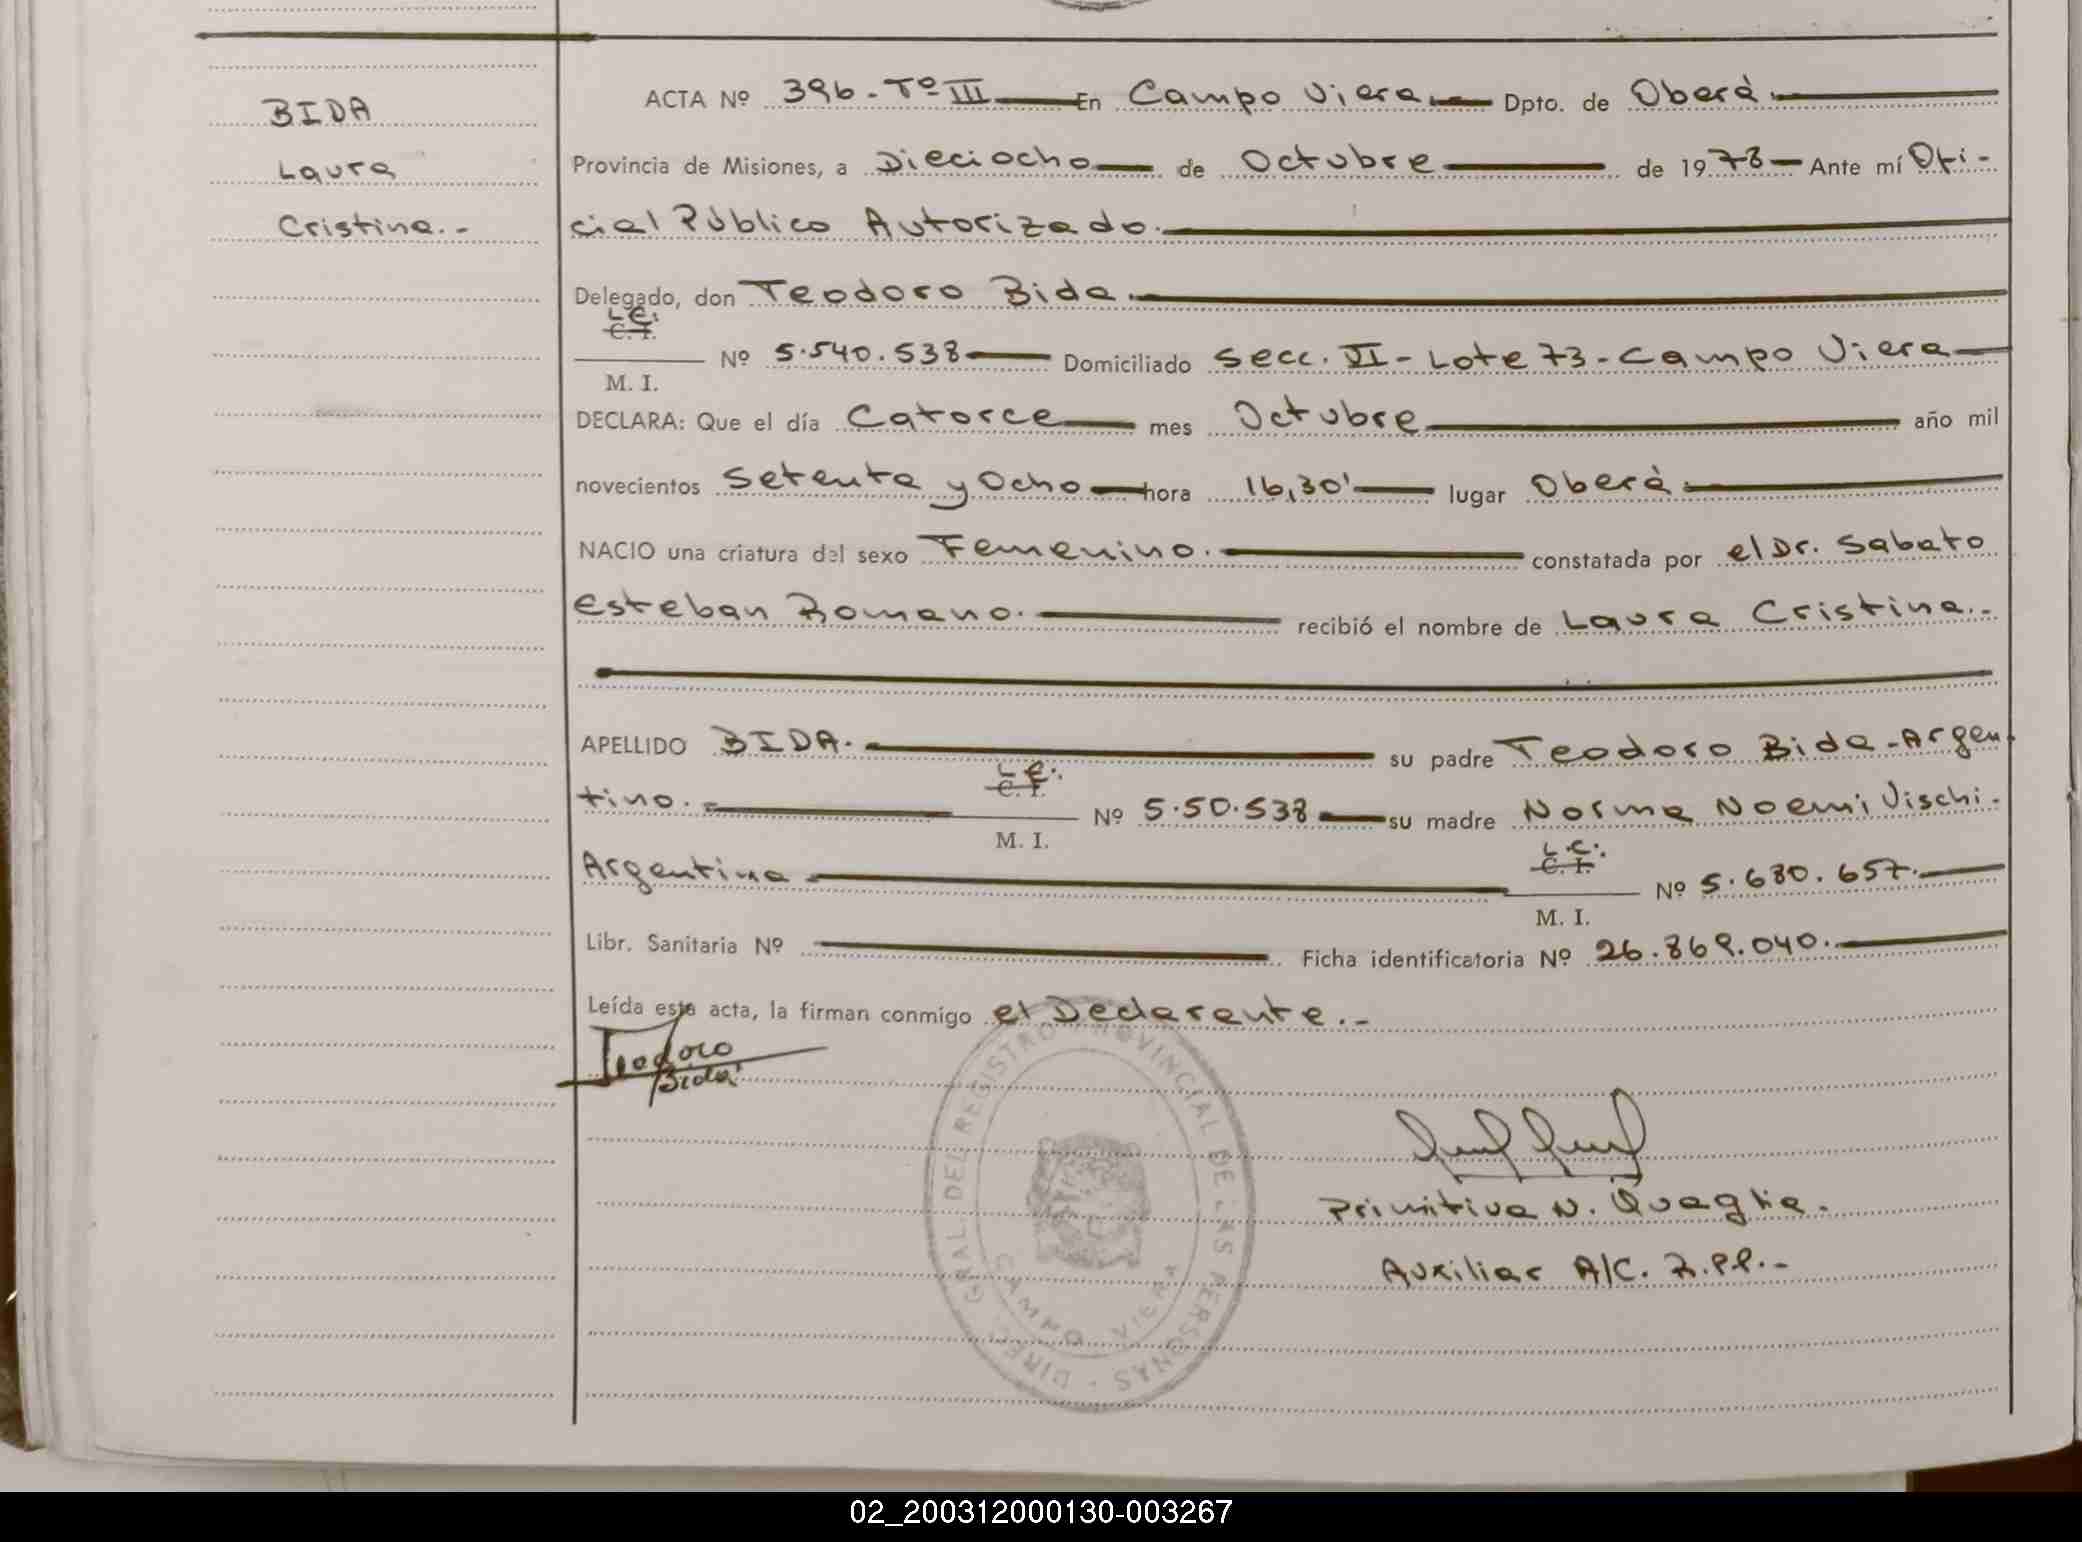 BIDA
Laura
Cristina.-
ACTA Nº 396-Tº III En Campo Viera Dpto. de Oberá
Provincia de Misiones, a Dieciocho de Octubre de 1978 Ante mí Ofi-
cial Público Autorizado.
Delegado, don Teodoro Bida.
L.E.
C. I.
Nº 5.540.538 Domiciliado Secc. VI - Lote 73 - Campo Viera
M. I.
DECLARA: Que el día Catorce mes Octubre año mil
novecientos Setenta y Ocho hora 16,30' lugar Oberá
NACIO una criatura del sexo Femenino. constatada por el Dr. Sabato
Esteban Romano. recibió el nombre de Laura Cristina.-
APELLIDO BIDA. su padre Teodoro Bida - Argen-
L.E.
C. I.
tino.- Nº 5.50.538 su madre Norma Noemi Vischi.
M. I.
L.C.
C. I.
Argentina Nº 5.680.657.
M. I.
Libr. Sanitaria Nº Ficha identificatoria Nº 26.869.040.
Leída esta acta, la firman conmigo el Declarante.-
Teodoro
Bida
DIREC. GRAL. DEL REGISTRO PROVINCIAL DE LAS PERSONAS -
CAMPO VIERA
Primitiva N. Quaglia.
Auxiliar A/C. R.PP.-
02_200312000130-003267